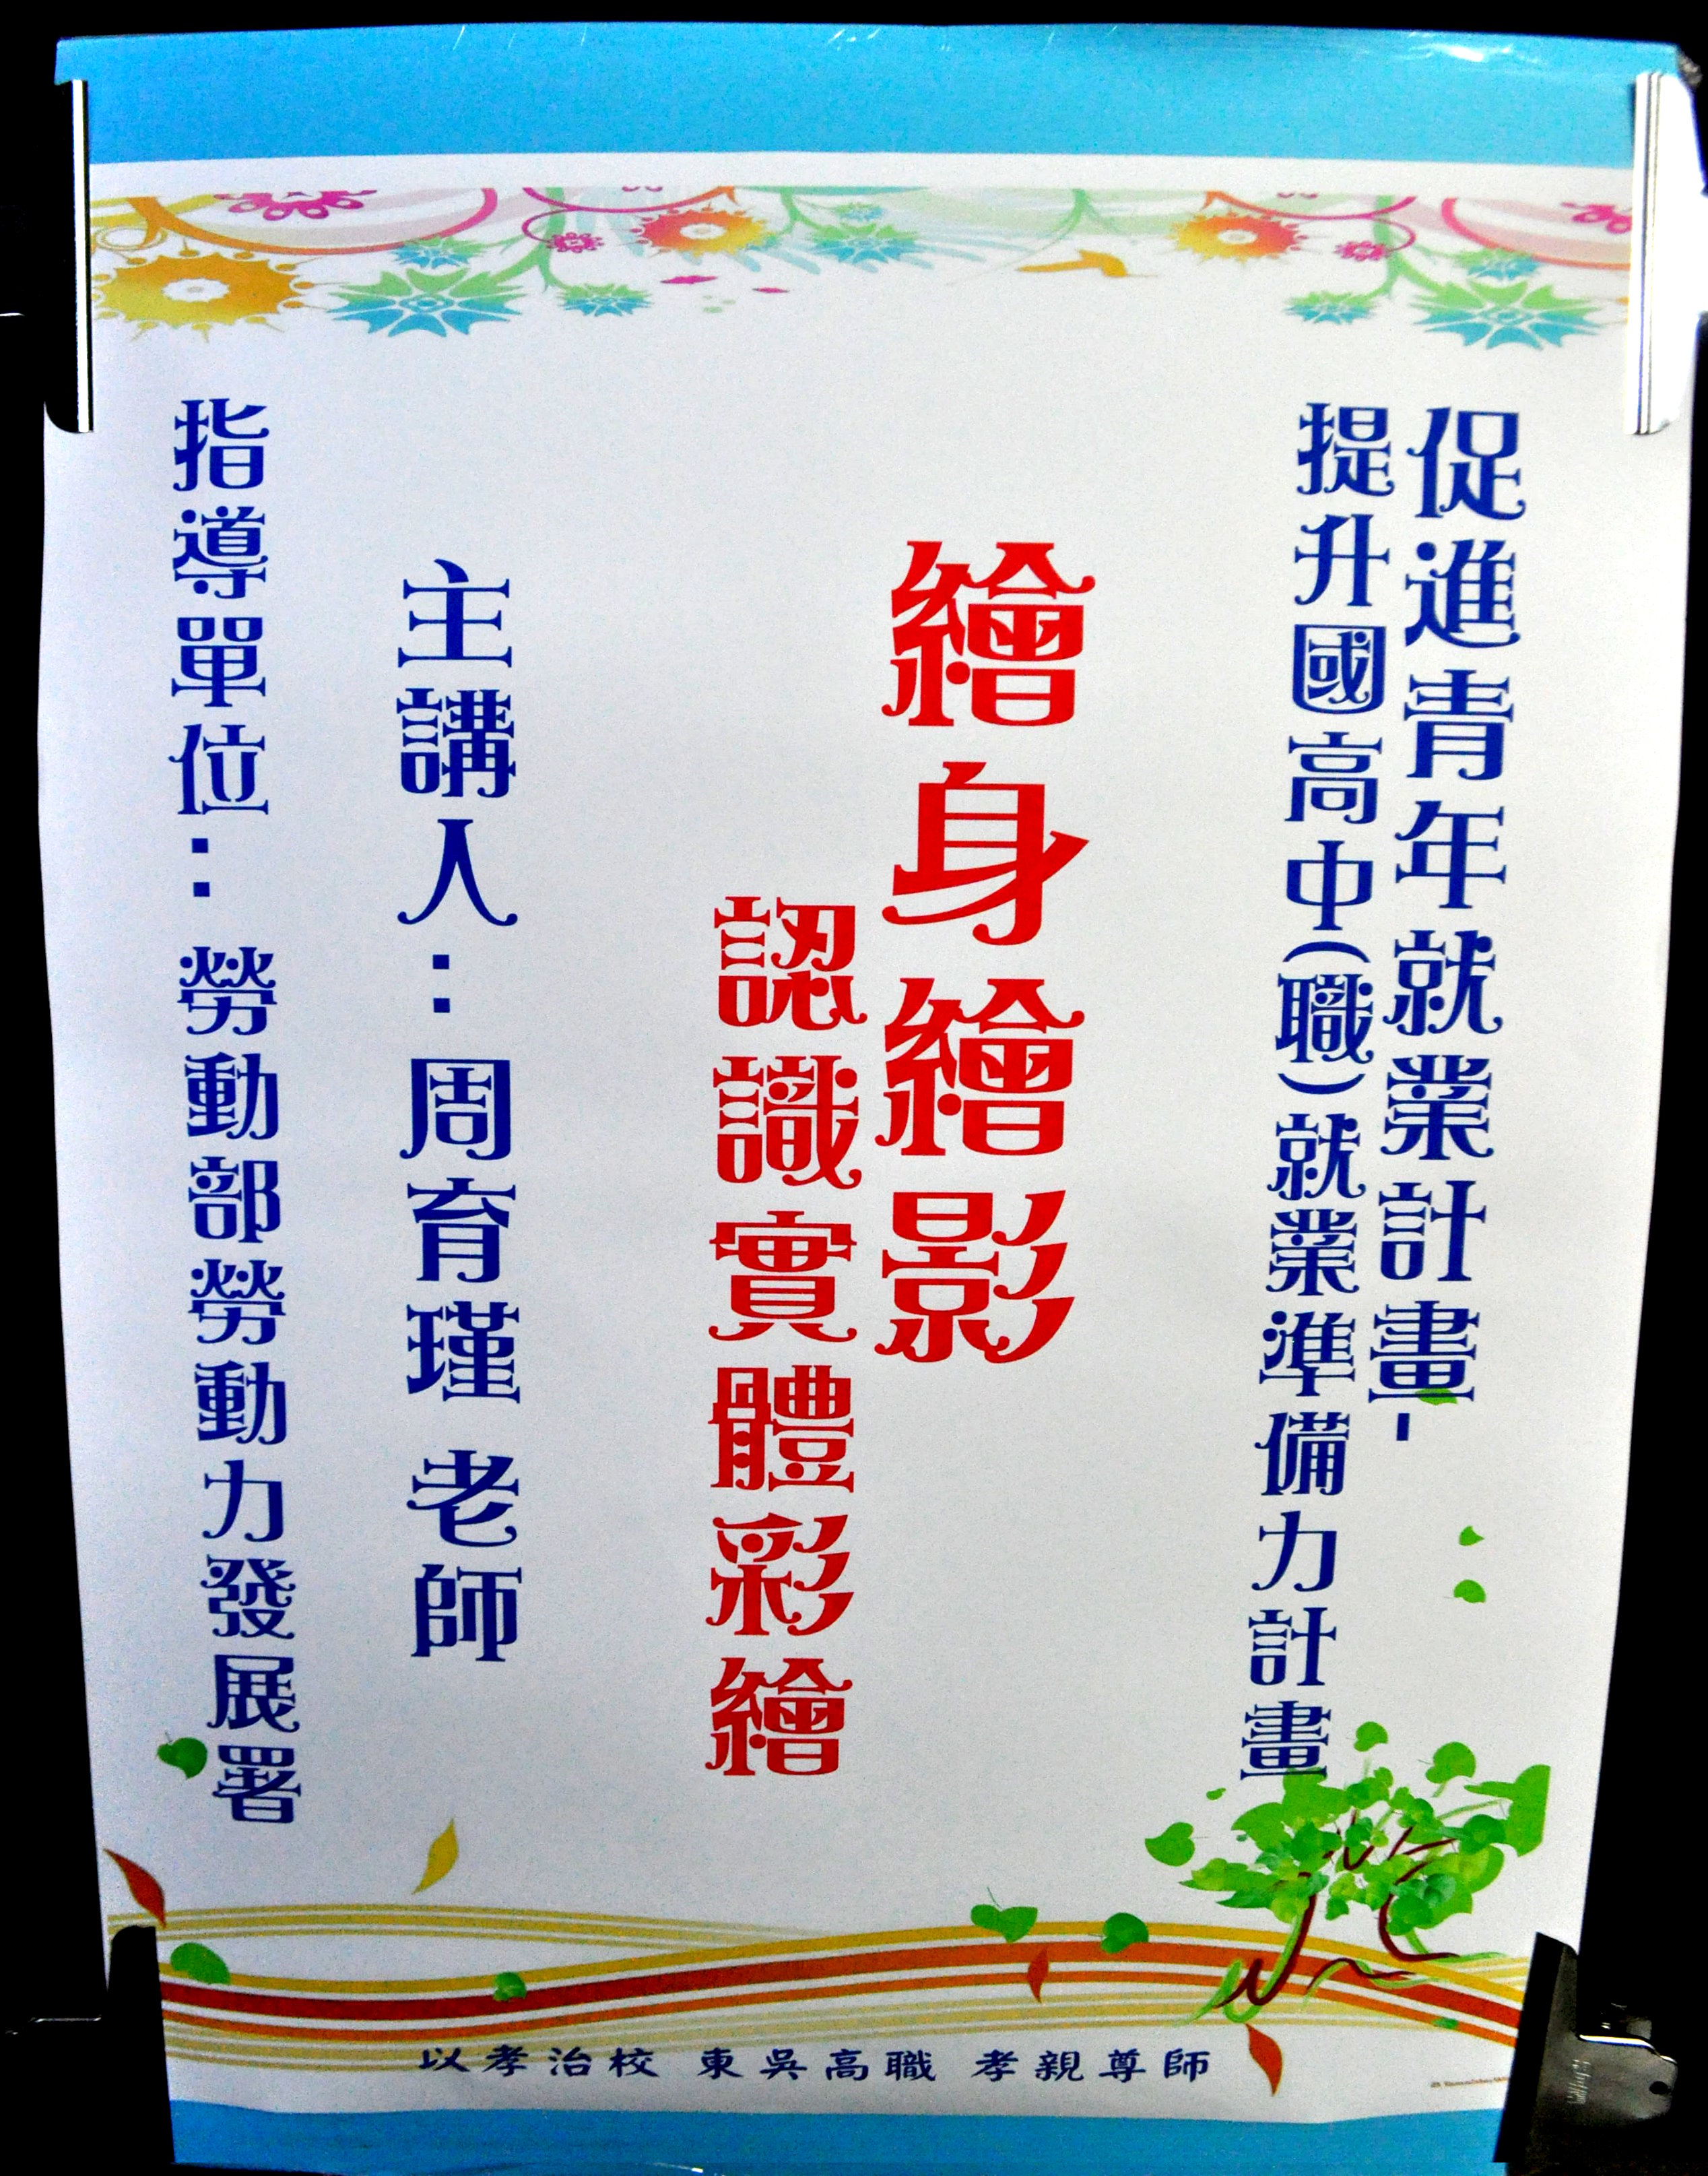 促進青年就業計畫-
提升國高中(職)就業準備力計畫
繪身繪影
認識實體彩繪
主講人：周育瑾 老師
指導單位：勞動部勞動力發展署
以孝治校 東吳高職 孝親尊師